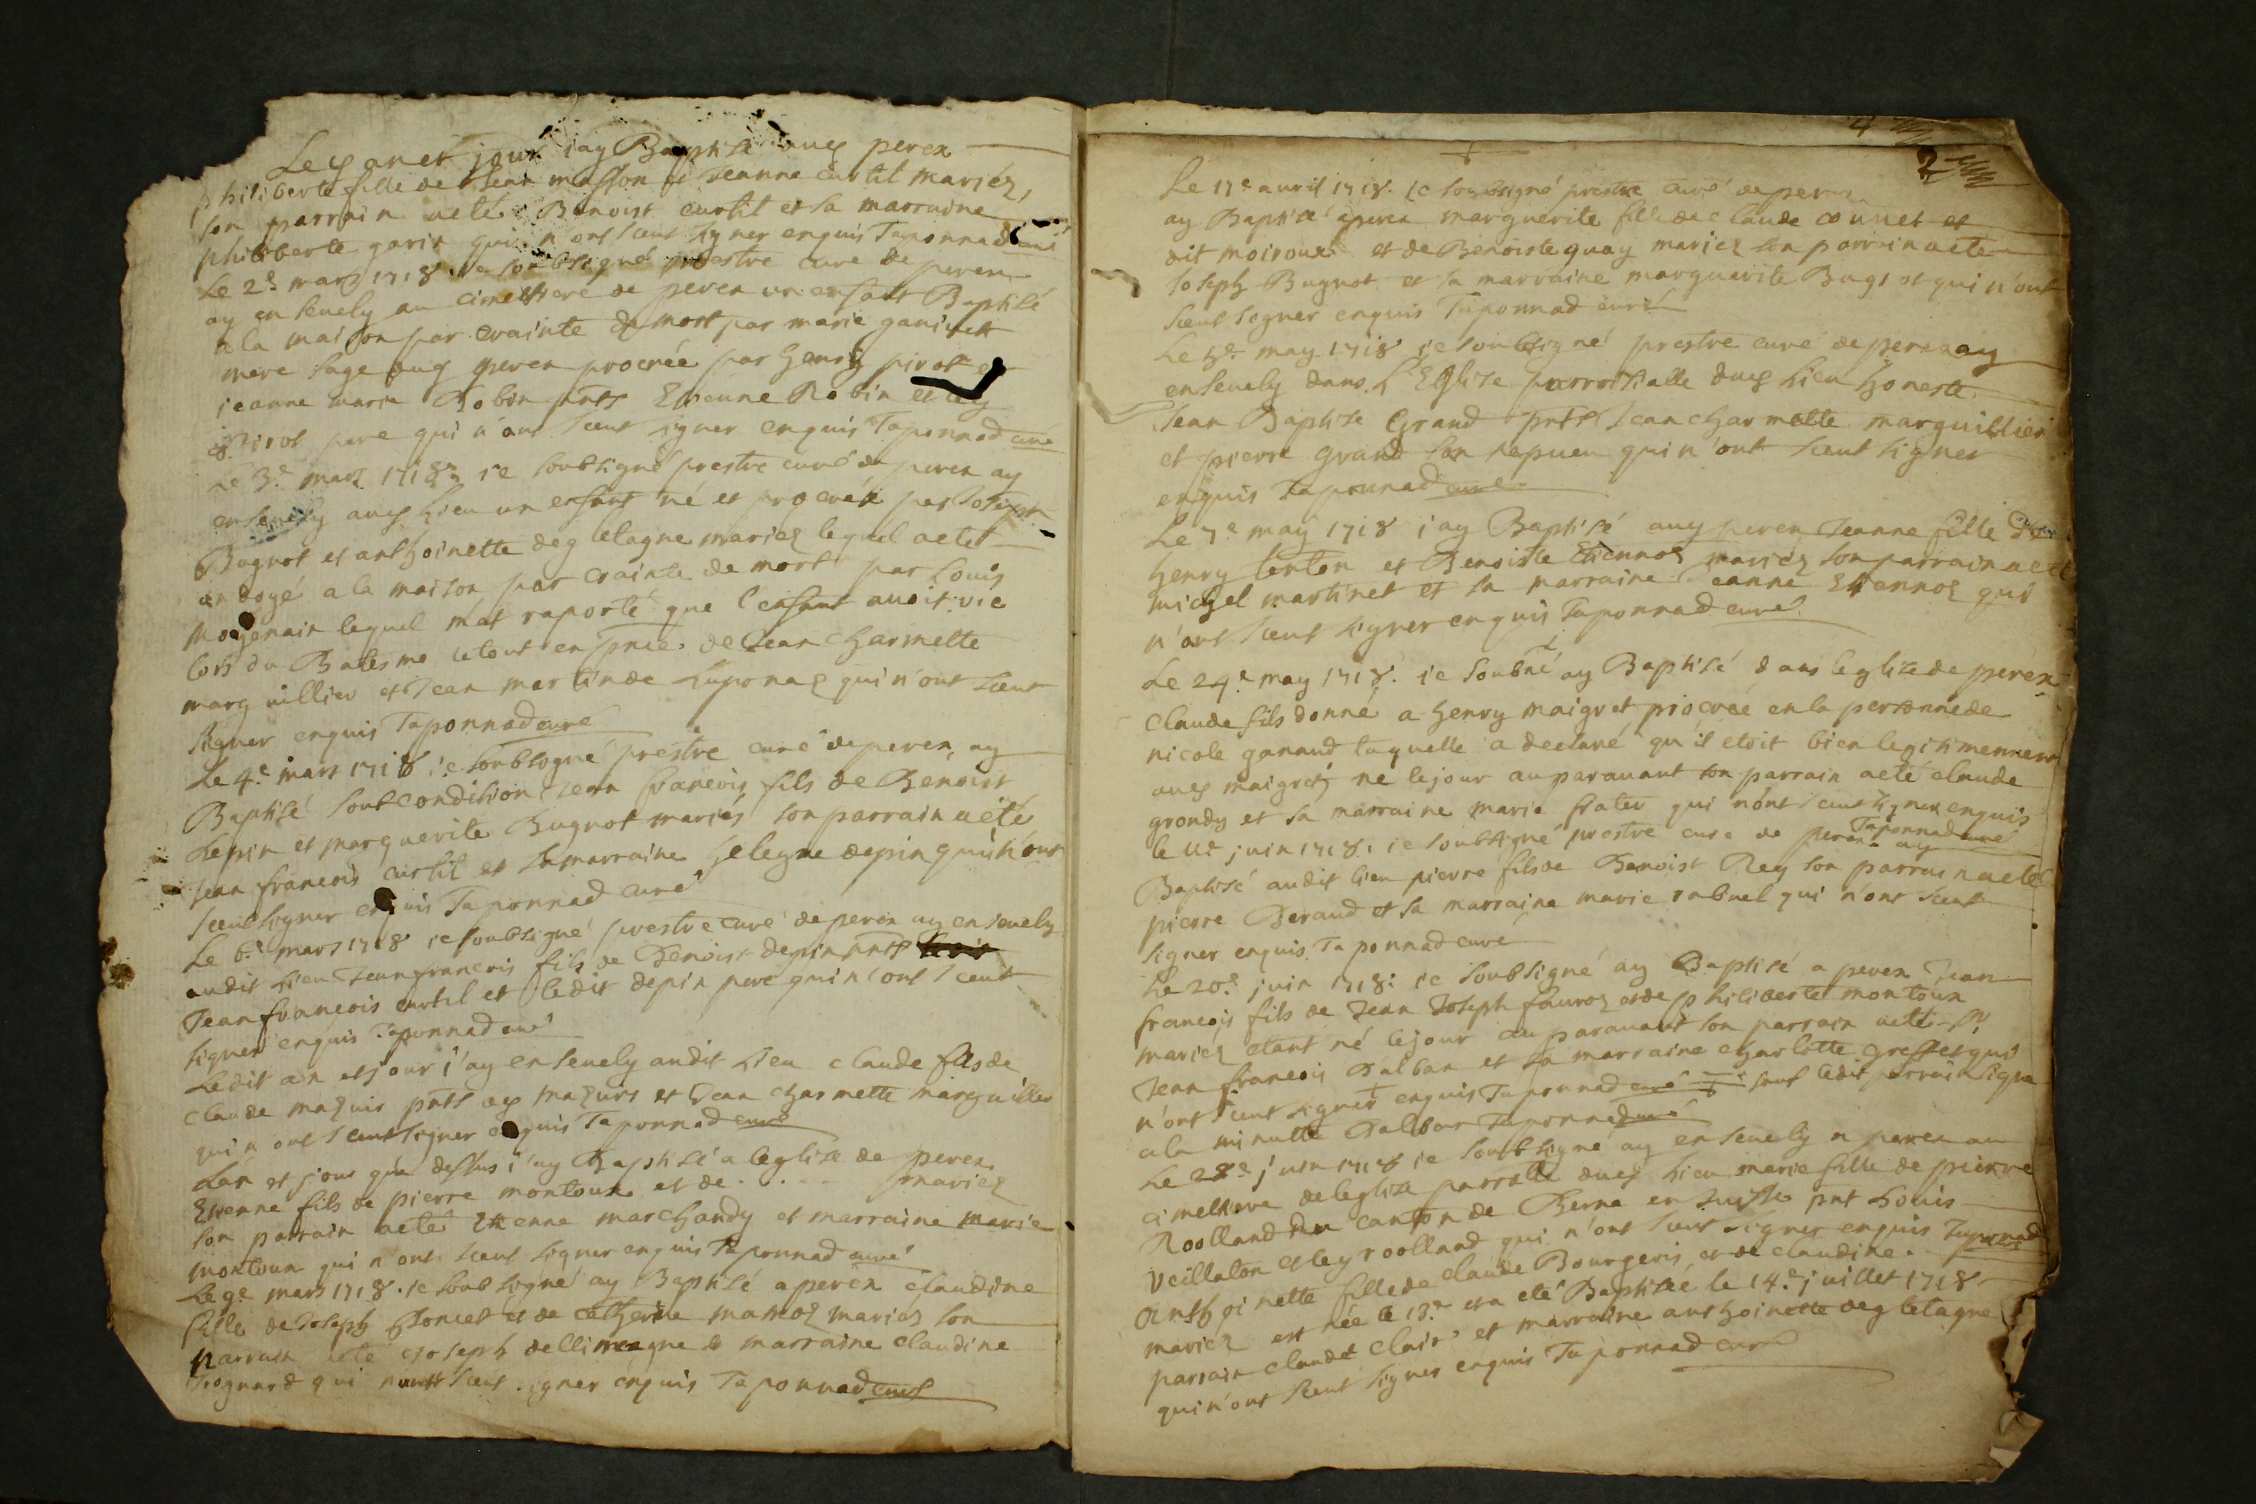 Les an et jour i'ay Baptisé aud perex
philiberte fille de Jean masson et Jeanne curtil mariéz,
son parrain a eté Benoist curtil et sa marraine
philiberte garin qui n'ont sceut signer enquis Taponnad curé
Le 2e mars 1718 soubsigné prestre curé de perex
ay ensevely au cimettiere de perex un enfant Baptisé
a la maison par crainte de mort par marie
mere sage aud perex procréé par henry pirot et
jeanne marie Robin pnts Etienne Robin et led
pirot pere qui n'ont sceut signer enquis Taponnad curé
Le 3e mars 1718 ie soubsigné prestre curé de perex ay
ensevely aud Lieu un enfant né et procréé par Joseph
Bugnot et anthoinette degletagne mariez lequel a eté
ondoyé a la maison par crainte de mort par Louis
moyenain lequel m'at raporté que l'enfant avoit vie
lors du Batesme le tout en pnce de Jean Charmette
marguillier et Jean martin de Luponas qui n'ont sceut
signer enquis Taponnad curé
Le 4e mars 1718 ie soubsigné prestre curé de perex, ay
Baptisé soubcondition Jean francois fils de Benoist
depin et marguerite Bugnot mariés son parrain a eté
Jean francois curtil et sa marraine helegne depin qui n'ont
sceut signer enquis Taponnad curé
Le 6e mars 1718 ie soubsigné prestre curé de perex ay ensevely
audit Lieu Jean francois fils de Benoist depin pnts
Jean francois curtil et ledit depin pere qui n'ont sceut
signer enquis Taponnad curé
Ledit an et jour i'ay ensevely audit Lieu claude fils de
claude mazuir pnts led mazuir et Jean charmette marguillier
qui n'ont sceut signer enquis Taponnad curé
L'an et jour que dessus i'ay Baptisé a leglise de perex
Etienne fils de pierre montoux et de . . . . mariez
son parrain a eté Etienne marchandy et marraine marie
montoux qui n'ont sceut signer enquis Taponnad curé
Le 9e mars 1718. ie soubsigné ay Baptisé a perex claudine
fille de Joseph Poncet et de catherine mamoz mariez son
parrain a eté Joseph dellimeagne et marraine claudine
Trognard qui n'ont sceut signer enquis Taponnad curé
2
Le 17e avril 1718. ie soubsigné prestre curé de perex
ay Baptisé a perex marguerite fille de claude connet et
dit moiroux et de Benoiste quay mariez son parrain a eté
Joseph Bugnot et sa marraine marguerite Bugnot qui n'ont
sceut signer enquis Taponnad curé
Le 5e may 1718 ie soubsigné prestre curé de perex ay
ensevely dans L'Eglise parroissialle dud Lieu honeste
Jean Baptiste Grand pnts Jean charmette marguillier
et pierre grand son nepueu qui n'ont sceut signer
enquis Taponnad curé
Le 7e may 1718 i'ay Baptisé aud perex Jeanne fille de
henry tenton et Benoiste Etiennoz mariéz son parrain a eté
michel martinet et sa marraine Jeanne Etiennoz qui
n'ont sceut signer enquis Taponnad curé
Le 24e may 1718. ie soubné ay Baptisé dans leglise de perex
claude fils donné a henry maigret, procréé en la personne de
nicole ganaud laquelle a declaré qu'il etoit bien legitimement
aud maigret né le jour auparavant son parrain a eté claude
grondy et sa marraine marie frater qui n'ont sceut signer enquis
Taponnad curé
le 11e juin 1718. ie soubsigné prestre curé de perex ay
Baptisé audit lieu pierre fils de Benoist Rey son parrain a eté
pierre Beraud et sa marraine marie rabuel qui n'ont sceut
signer enquis Taponnad curé
Le 20e juin 1718: ie soubsigné ay Baptisé a perex Jean
francois fils de Jean Joseph fauroz et de philiberte montoux
mariez etant né le jour auparavant son parrain a eté Sr
Jean francois Dalban et sa marraine charlotte greffet qui
n'ont sceut signer enquis Taponnad curé sauf ledit parrain signa
a la minutte Dalban Taponnad curé
Le 28e juin 1718 ie soubsigné ay ensevely a perex au
cimettiere de leglise parrslle dud Lieu marie fille de pierre
Roolland du canton de Berne en suisse pnt Louis
Veillaton et led roolland qui n'ont sceut signer enquis Taponnad
Anthoinette fille de claude Bourgeois et de claudine.
mariez est née le 13e et a eté Baptisée le 14e juillet 1718
parrain claude clair et marraine anthoinette degletagne
qui n'ont sceut signer enquis Taponnad curé